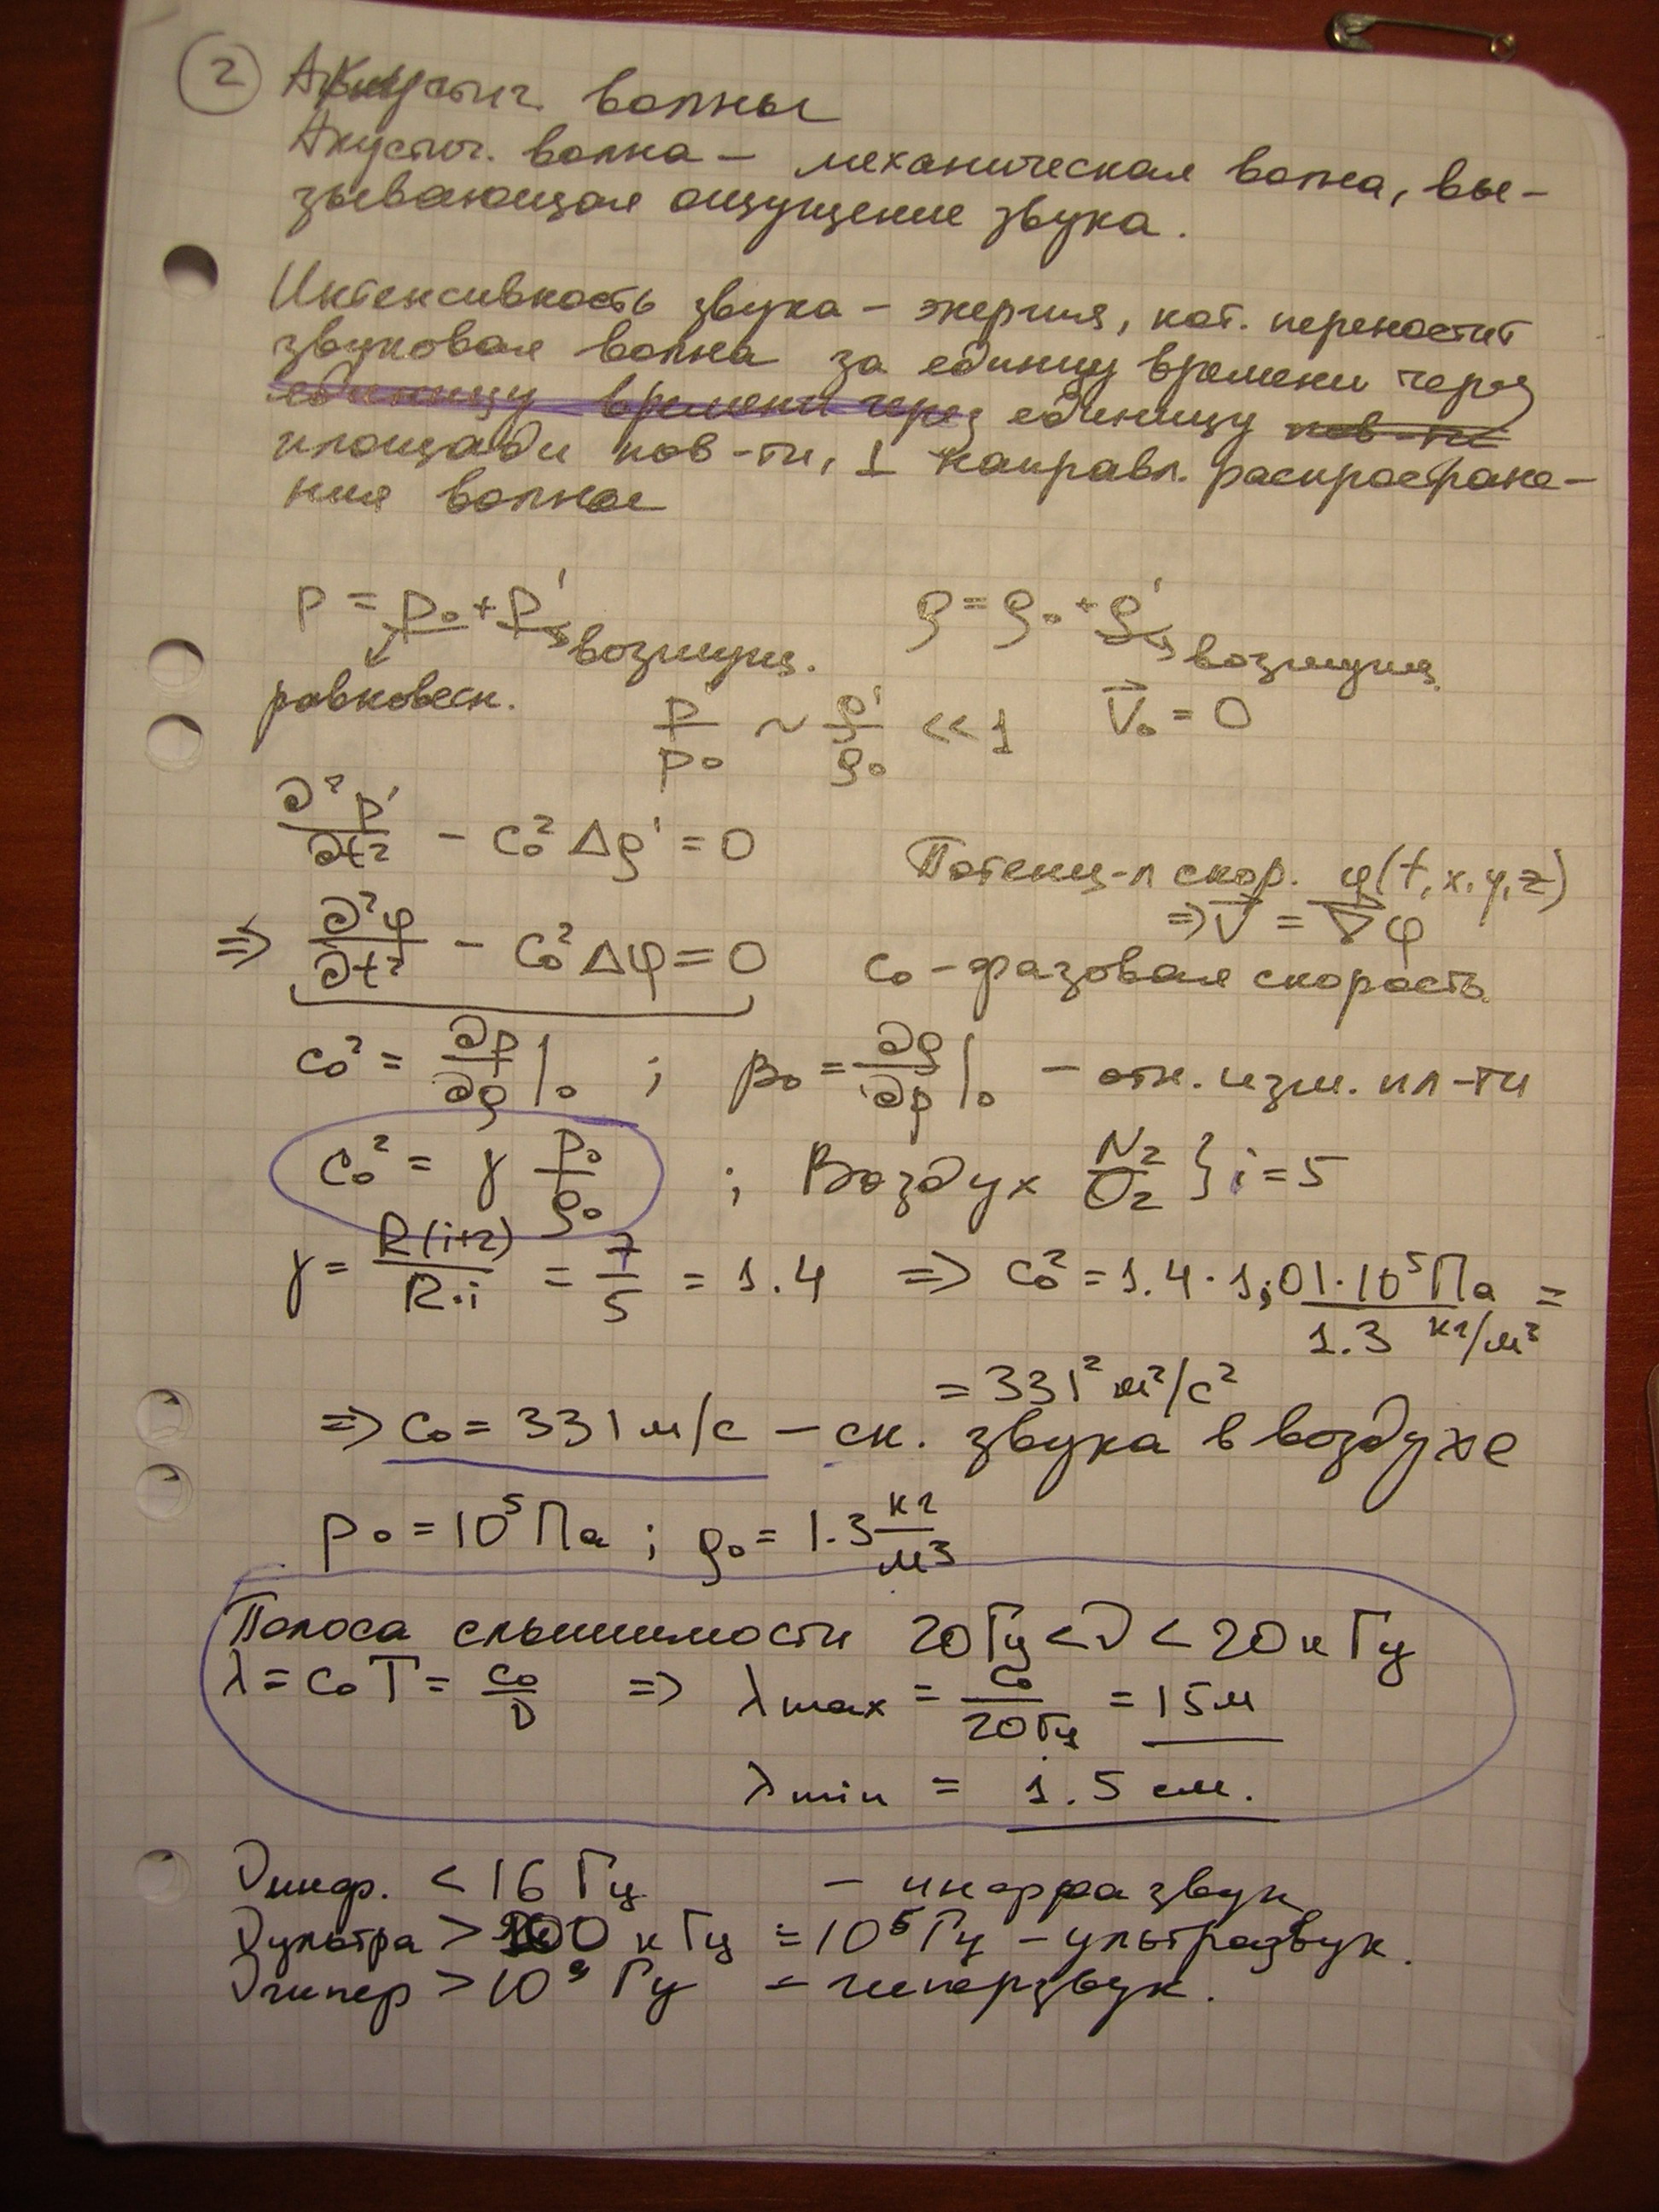 2 Акустич. волны
Акустич. волна – механическая волна, вы-
зывающая ощущение звука.
Интенсивность звука – энергия, кот. переностит
звуковая волна за единицу времени через
единицу времени через единицу пов-ти
площади пов-ти, ⊥ направл. распростране-
ния волны
p = p₀ + p' ρ = ρ₀ + ρ'
возмущ. возмущ.
равновесн.
p'/p₀ ~ ρ'/ρ₀ << 1 V⃗₀ = 0
∂²p'/∂t² – c₀² Δρ' = 0
Потенц-л скор. φ(t, x, y, z)
=> ∂²φ/∂t² – c₀² Δφ = 0 => V⃗ = ∇φ
c₀ – фазовая скорость
c₀² = ∂p/∂ρ |₀ ; β₀ = ∂ρ/∂p |₀ – отн. изм. пл-ти
c₀² = γ p₀/ρ₀ ; Воздух N₂ O₂ } i = 5
γ = R(i+2)/R·i = 7/5 = 1.4 => c₀² = 1.4 · 1,01·10⁵ Па / 1.3 кг/м³ =
= 331² м²/с²
=> c₀ = 331 м/с – ск. звука в воздухе
p₀ = 10⁵ Па ; ρ₀ = 1.3 кг/м³
Полоса слышимости 20 Гц < ν < 20 кГц
λ = c₀T = c₀/ν => λmax = c₀/20Гц = 15 м
λmin = 1.5 см.
νинфр. < 16 Гц – инфразвук
νультра > 100 кГц = 10⁵ Гц – ультразвук.
νгипер > 10⁹ Гц – гиперзвук.